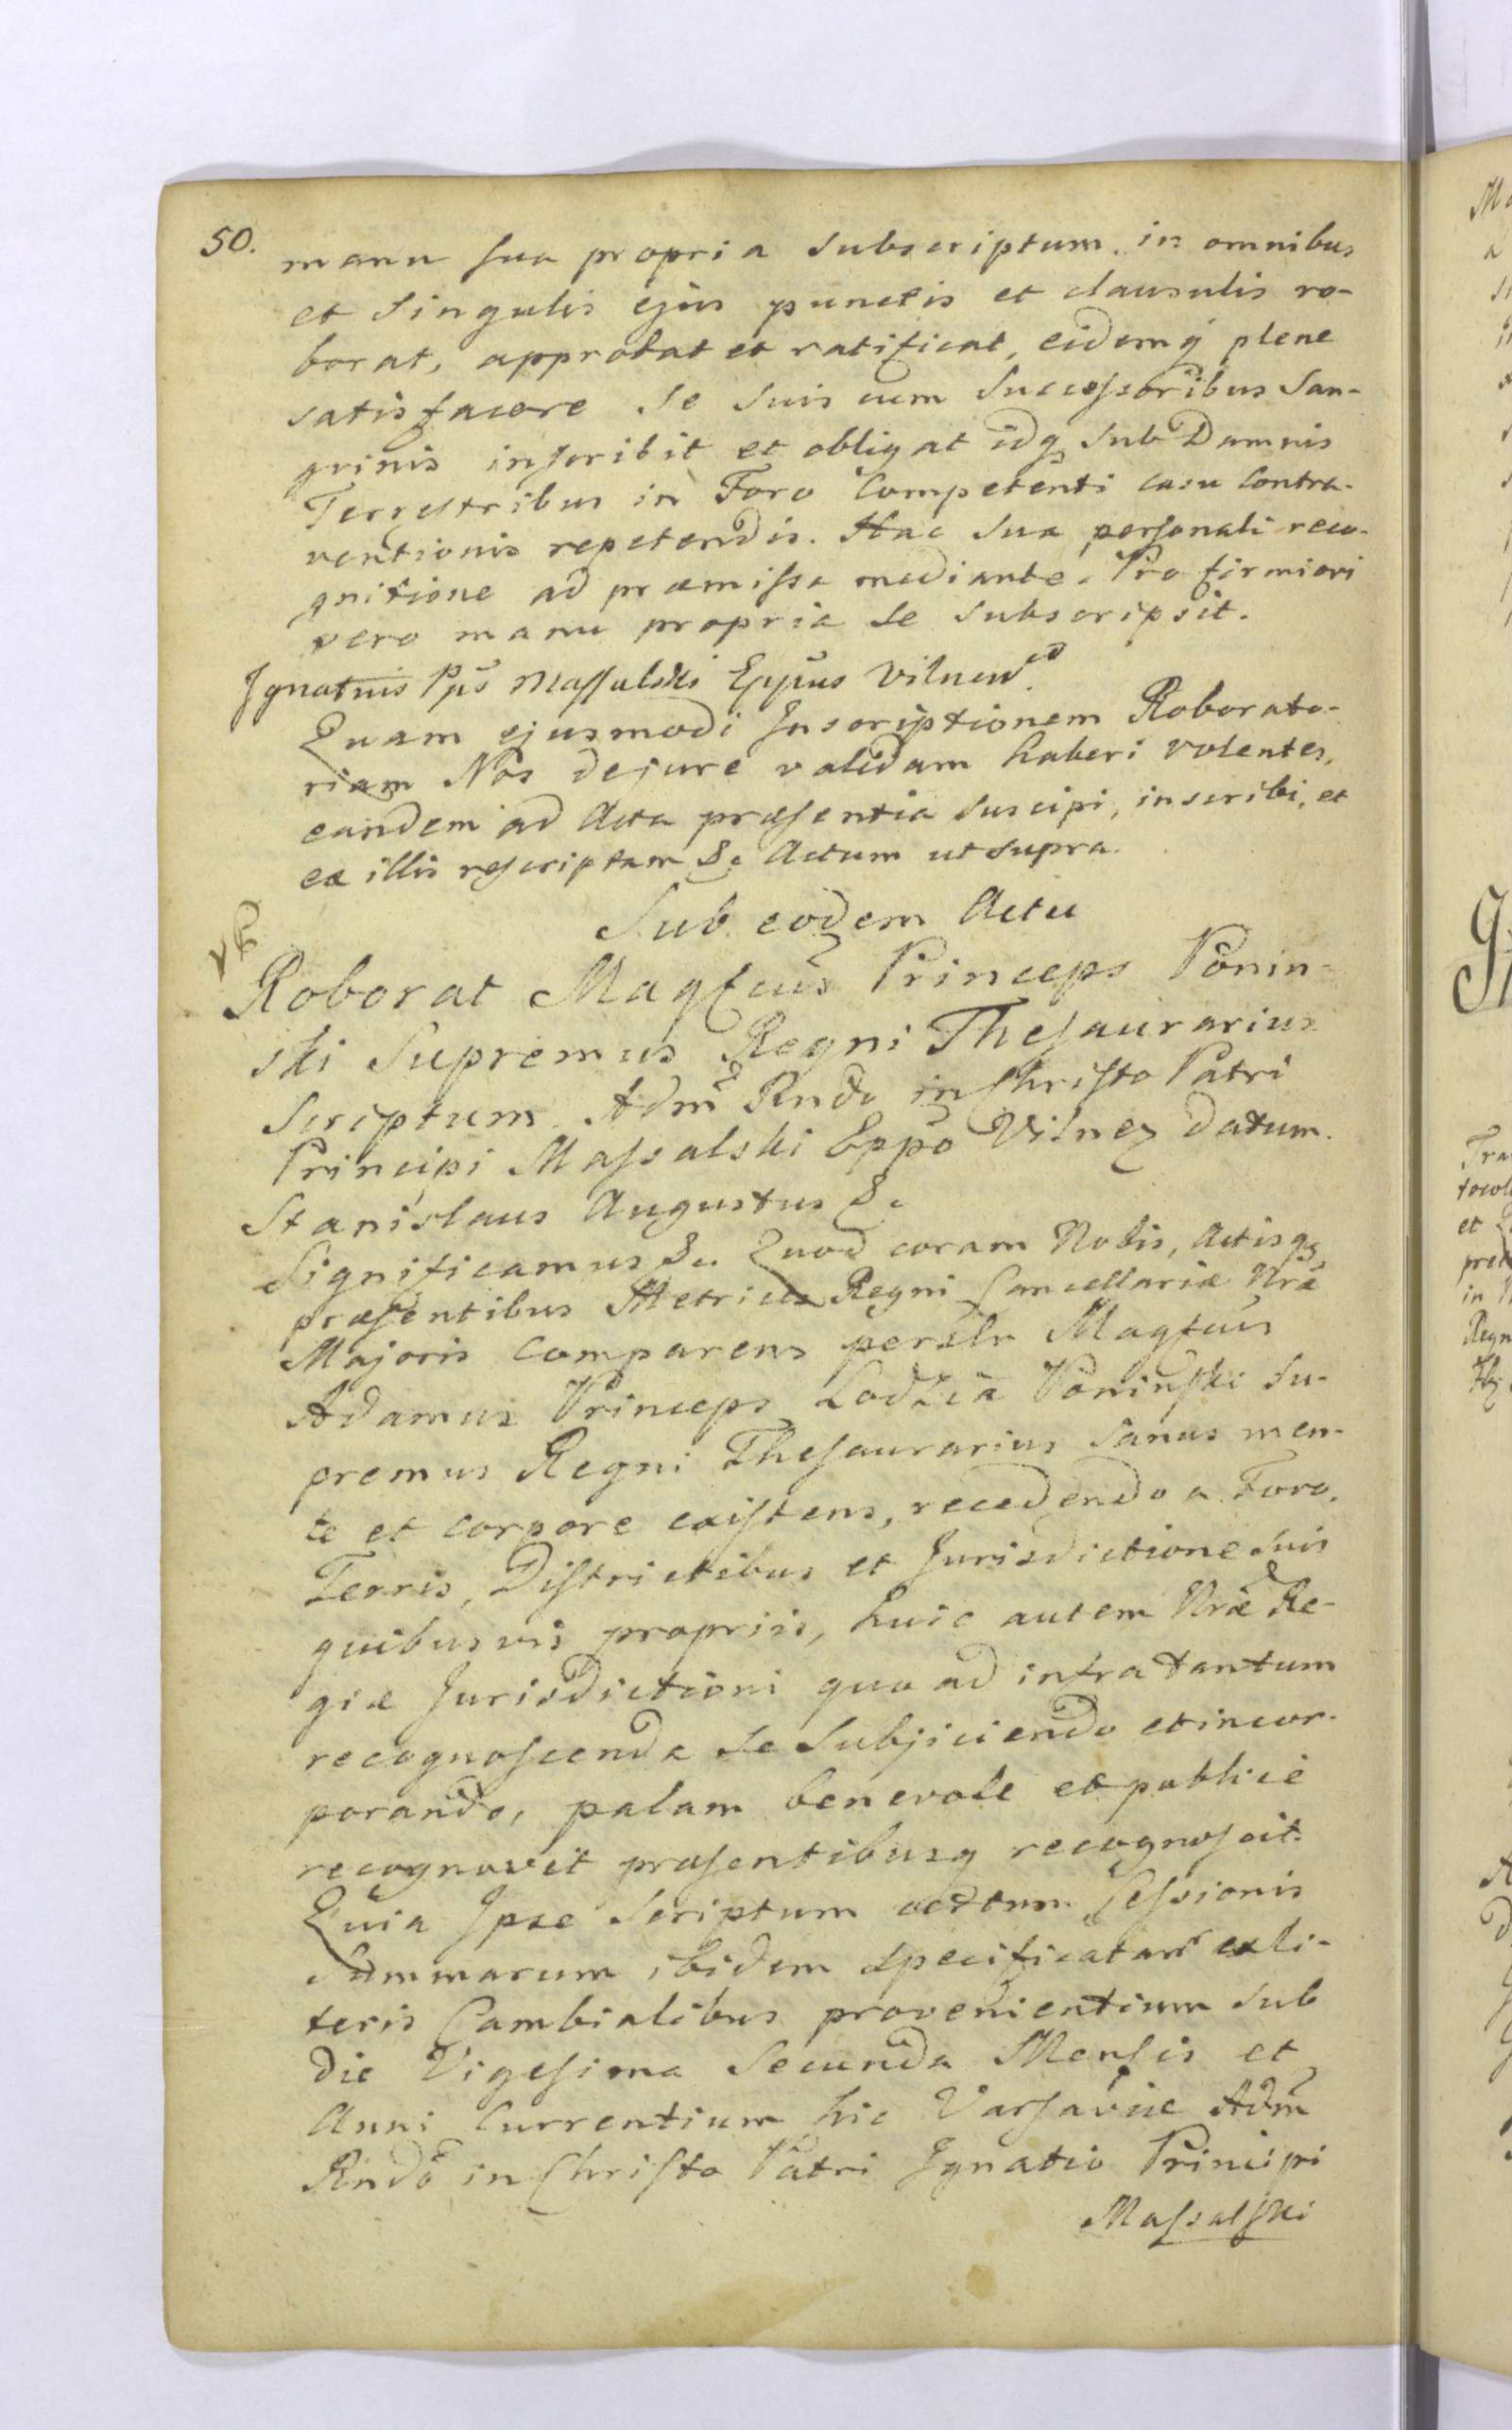 50.
manu sua propria subscriptum in omnibus
et singulis ejus punctis et clausulis ro-
borat, approbat et ratificat, eidemq plene
satisfacere se suis cum successoribus San-
gvinis inscribit et obligat idq sub Damnis
Terrestribus in Foro Competenti casu Contra-
ventionis repetendis. Hac sua personali reco-
gnitione ad præmissa mediante. Pro firmiori
vero manu propria se subscripsit.
Ignatius Pps Massalski Eppus Vilnen
Quam ejusmodi Inscriptionem Roborato-
riam Nos de jure validam haberi volentes,
eandem ad Acta præsentia suscipi, inscribi, et
ex illis rescriptam &c Actum ut supra.
Sub eodem Actu
Roborat Magfcus Princeps Ponin-
ski Supremus Regni Thesaurarius
Scriptum Adm Rndo in Christo Patri
Principi Massalski Eppo Vilnen Datum.
Stanislaus Augustus &c
Significamus &c. Quod coram Nobis, Actisq
præsentibus Metrices Regni Cancellariæ Nræ
Majoris Comparens persolr Magfcus
Adamus Princeps Lodzia Poninski Su-
premus Regni Thesaurarius sanus men-
te et corpore existens, recedendo a Foro,
Terris, Districtibus et Jurisdictione suis
quibusvis propriis, huic autem Nræ Re-
giæ Jurisdictioni quo ad infra tantum
recognoscenda se subjiciendo et incor-
porando, palam benevole et publice
recognovit præsentibusq recognoscit.
Quia Ipse Scriptum Cessionis
Summarum ibidem specificatar ex li-
teris Cambialibus provenientium sub
die Vigesima Secunda Mensis et
Anni Currentium hic Varsaviæ Adm
Rndo in Christo Patri Ignatio Principi
Massalski